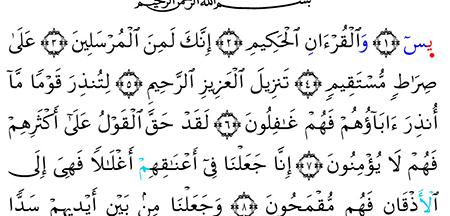 بسم الله الرحمن الرحيم
يسٓ ﴿١﴾ وَالْقُرْءَانِ الْحَكِيمِ ﴿٢﴾ إِنَّكَ لَمِنَ الْمُرْسَلِينَ ﴿٣﴾ عَلَىٰ
صِرَاطٍ مُّسْتَقِيمٍ ﴿٤﴾ تَنزِيلَ الْعَزِيزِ الرَّحِيمِ ﴿٥﴾ لِتُنذِرَ قَوْمًا مَّآ
أُنذِرَ ءَابَآؤُهُمْ فَهُمْ غَـٰفِلُونَ ﴿٦﴾ لَقَدْ حَقَّ الْقَوْلُ عَلَىٰٓ أَكْثَرِهِمْ
فَهُمْ لَا يُؤْمِنُونَ ﴿٧﴾ إِنَّا جَعَلْنَا فِىٓ أَعْنَـٰقِهِمْ أَغْلَـٰلًا فَهِىَ إِلَى
الْأَذْقَانِ فَهُم مُّقْمَحُونَ ﴿٨﴾ وَجَعَلْنَا مِنۢ بَيْنِ أَيْدِيهِمْ سَدًّا